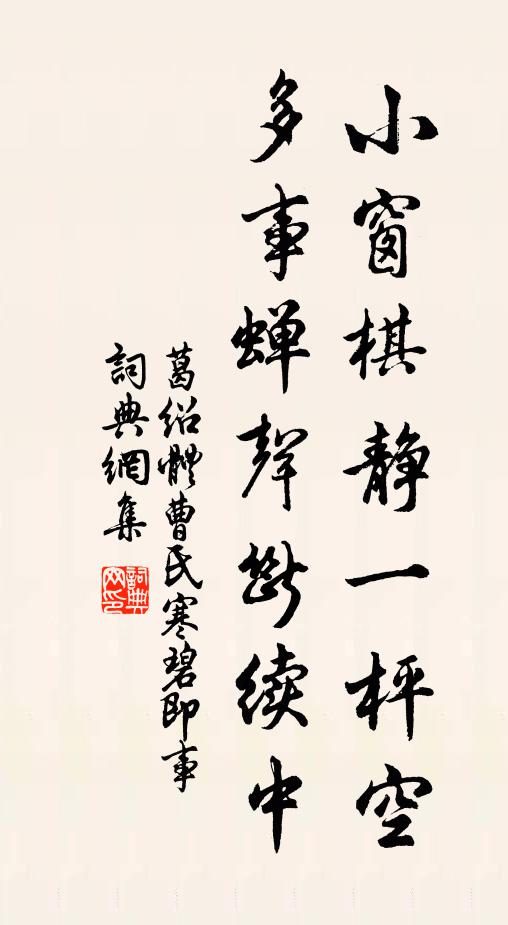 小窗棋静一枰空
多事蝉聲斷续中
葛绍體曹民寒碧即事
詞典網集
詞典网印